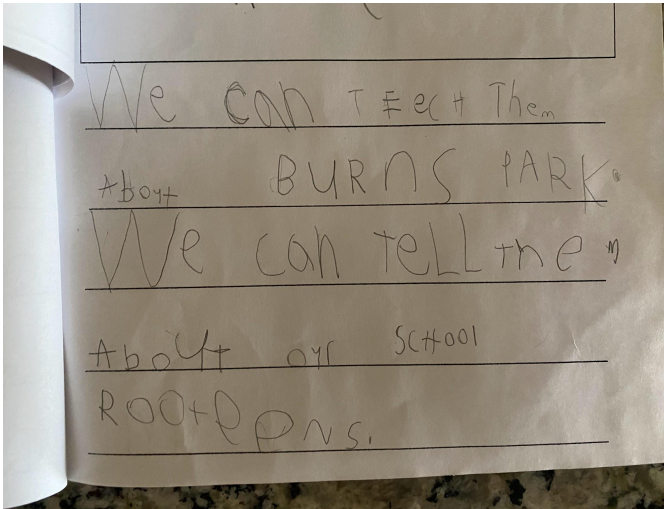 We can TEECH Them
About BURNS PARK.
We can TELL them
About our SCHOOL
ROOtEENS.